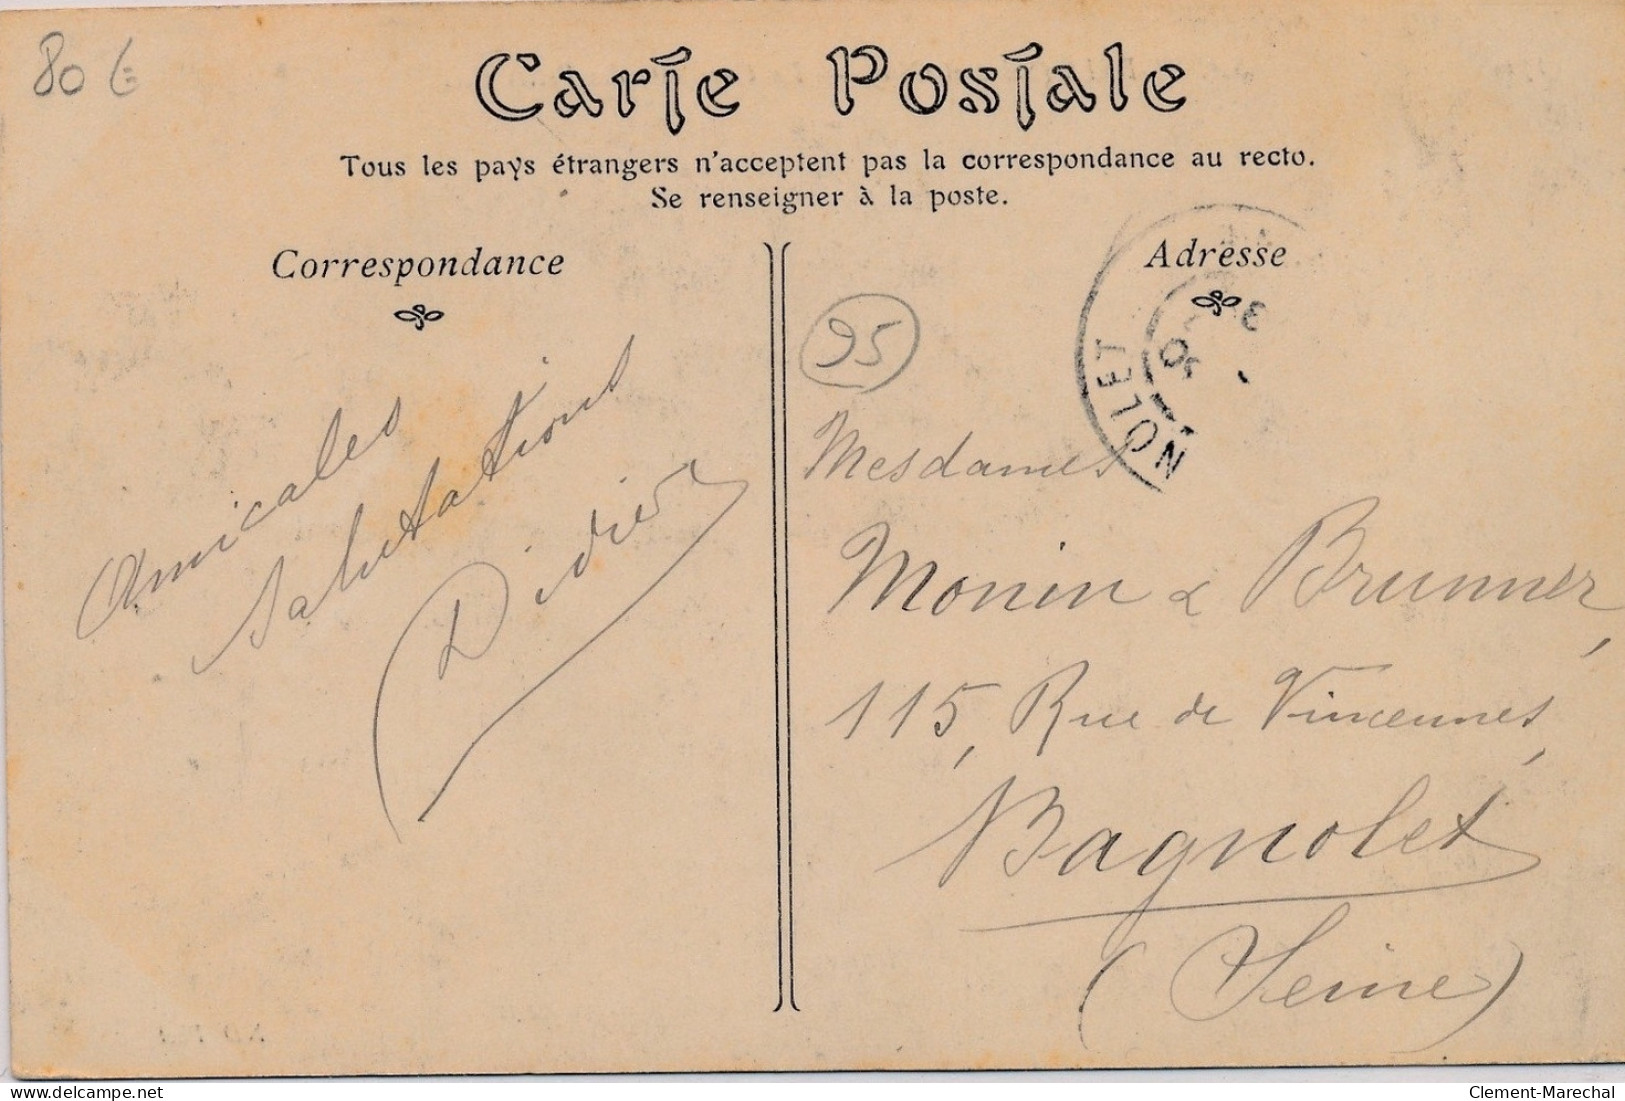 80 €
Carte Postale
Tous les pays étrangers n'acceptent pas la correspondance au recto.
Se renseigner à la poste.
Correspondance
Amicales
Salutations
Didier
Adresse
95
NOLET
Mesdames
Monin & Brunner,
115, Rue de Vincennes,
Bagnolet
(Seine)
delcampe.net
Clement-Marechal